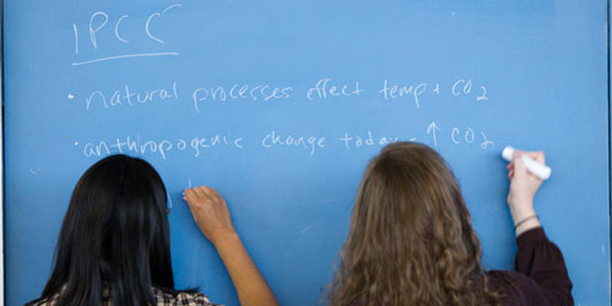 IPCC
• natural processes effect temp + CO2
• anthropogenic change today - ↑ CO2